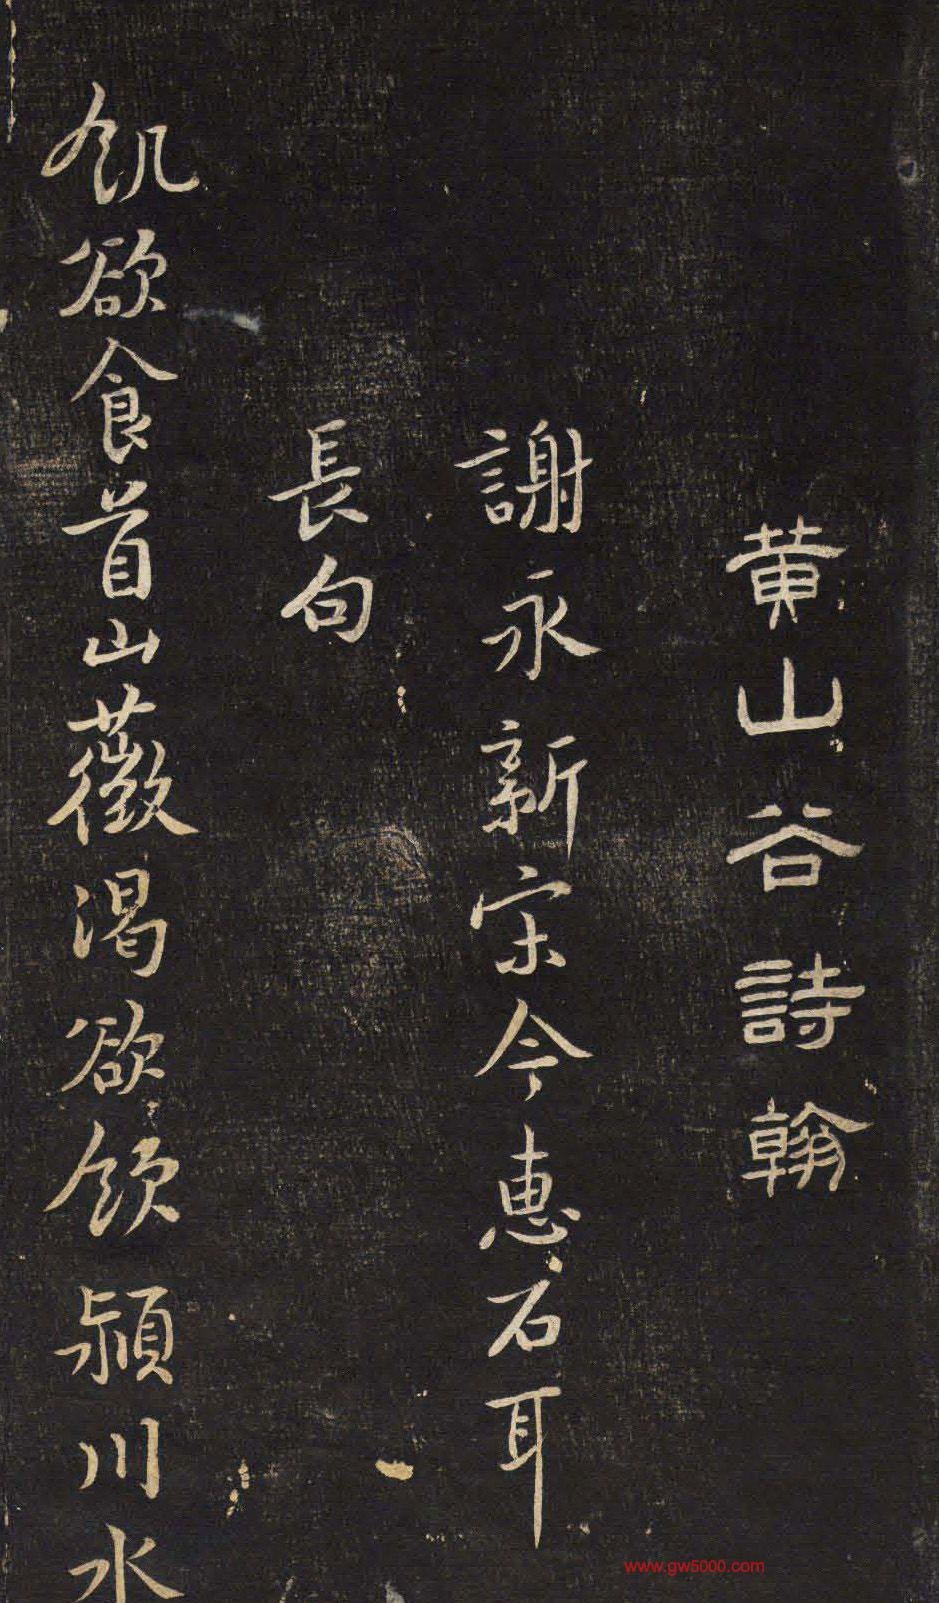 黄山谷詩翰
謝永新宋令惠石耳
長句
飢欲食首山薇渴欲飲潁川水
www.gw5000.com